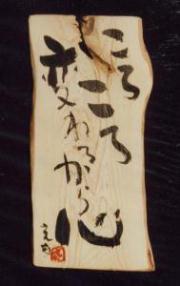 ころ
ころ
変わるから
心